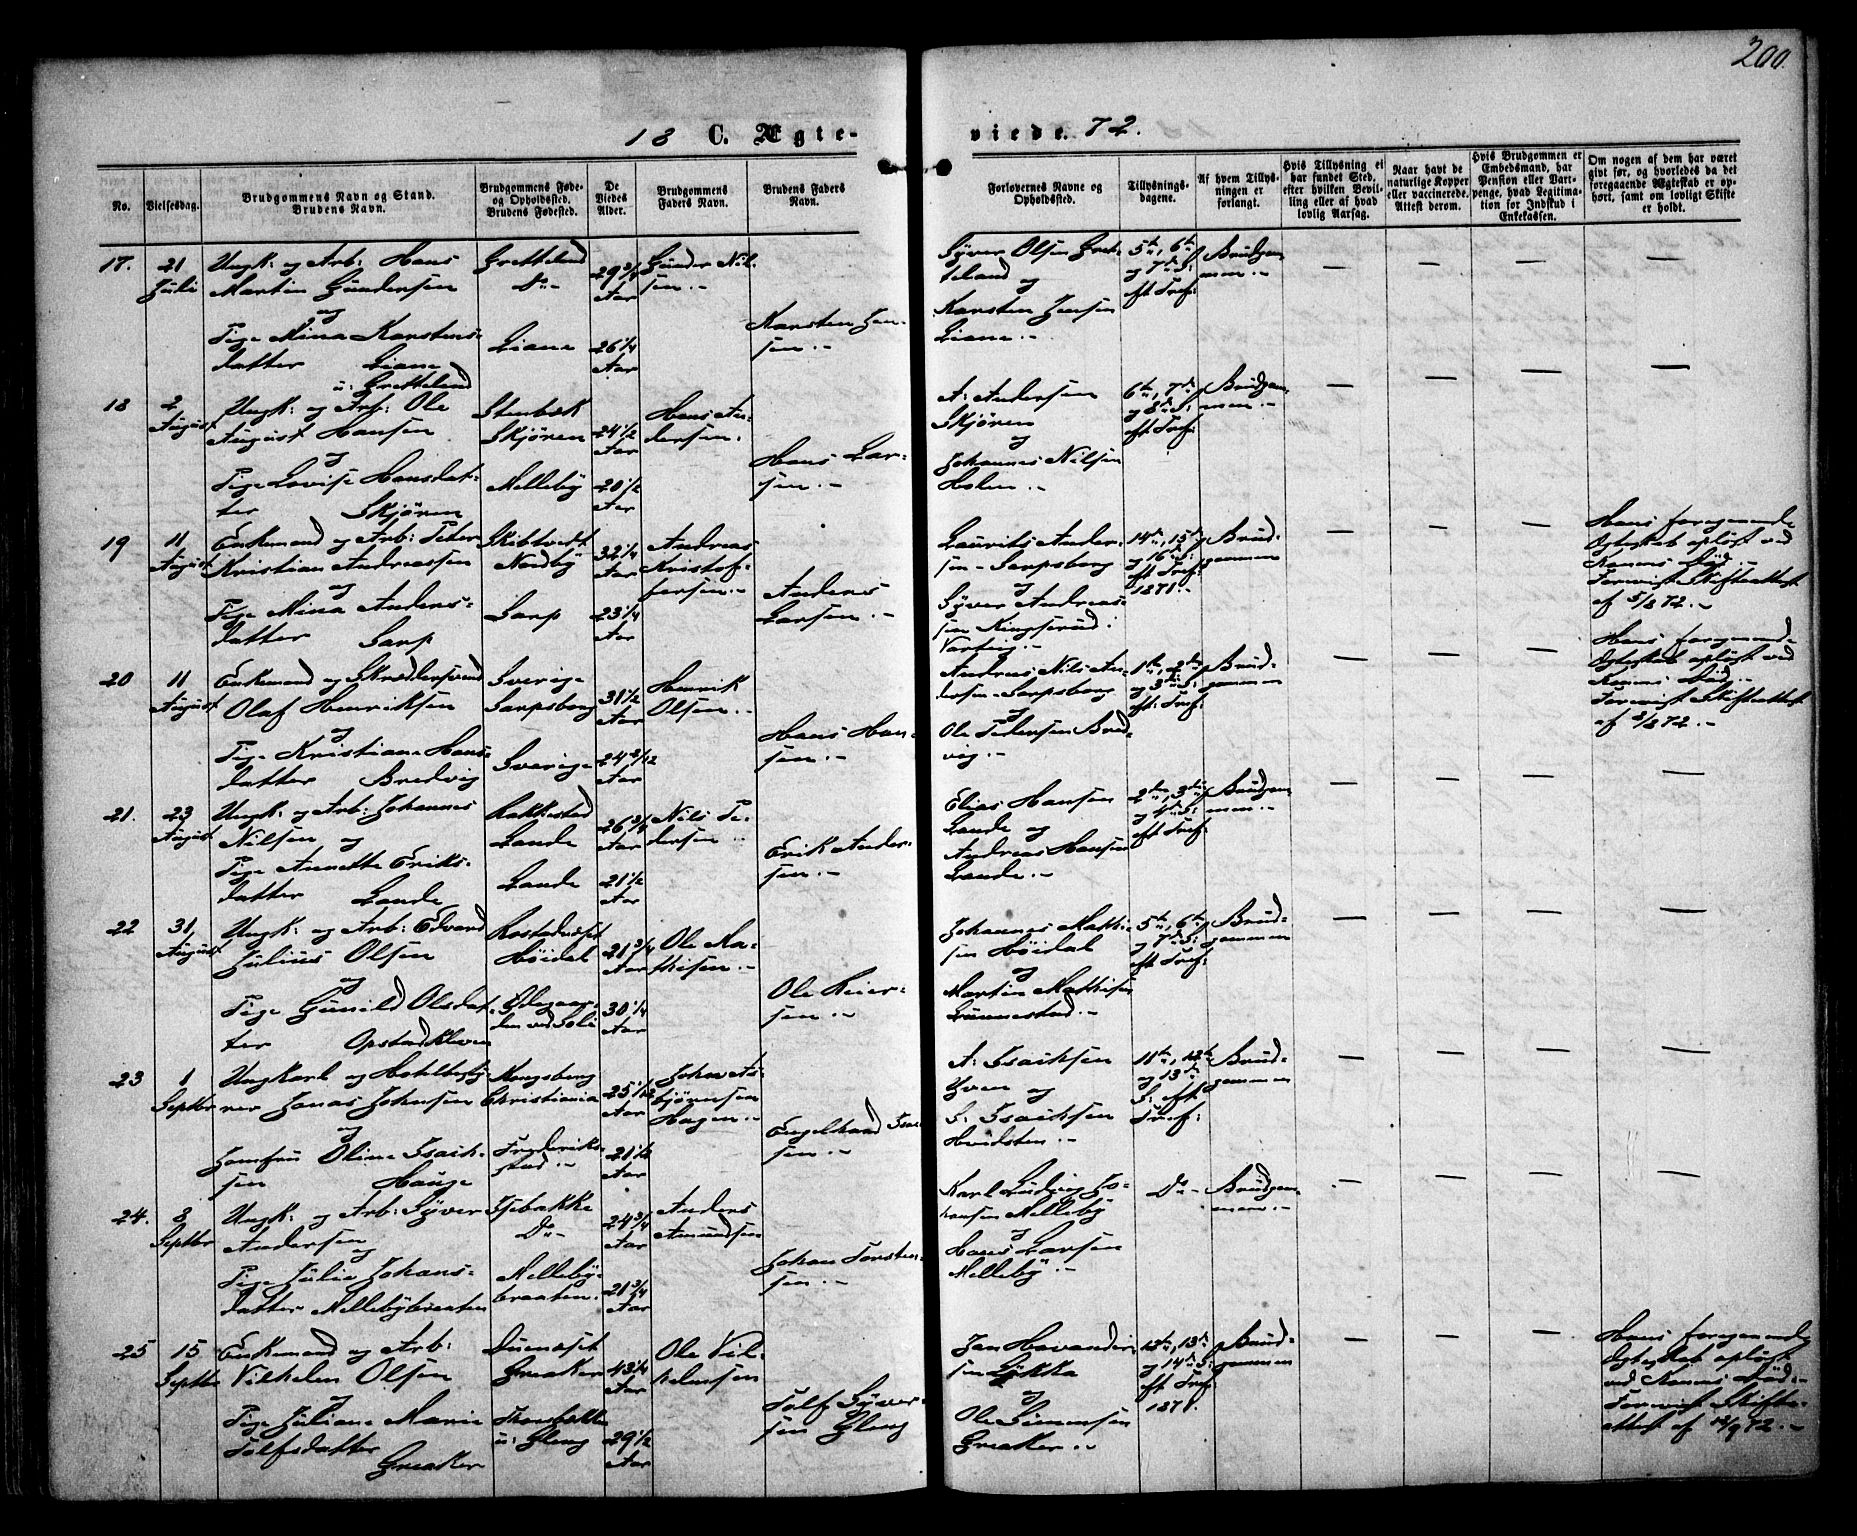 200.
18 C. Ægte-
viede. 72.
No.
Vielsesdag.
Brudgommens Navn og Stand.
Brudens Navn.
Brudgommens Føde-
og Opholdssted.
Brudens Fødested.
De
Viedes
Alder.
Brudgommens
Faders Navn.
Brudens Faders
Navn.
Forlovernes Navne og
Opholdssted.
Tillysnings-
dagene.
Af hvem Tillys-
ningen er
forlangt.
Hvis Tillysning ei
har fundet Sted,
efter hvilken Bevil-
ling eller af hvad
lovlig Aarsag.
Naar havt de
naturlige Kopper
eller vaccinerede.
Attest derom.
Hvis Brudgommen er
Embedsmand, har
Pension eller Var-
penge, hvad Legitima-
tion for Indskud i
Enkekassen.
Om nogen af dem har været
givt før, og hvorledes da det
foregaaende Ægteskab er op-
hørt, samt om lovligt Skifte
er holdt.
17.
21
Juli
Ungk: og Arb: Hans
Martin Gundersen
og
Pige Mina Karstens-
datter Liane
u: Gretteland
Gretteland
Do -
Liane
29 3/4
Aar
26 1/4
Aar
Gunder Nil-
sen.-
Karsten Jen-
sen.-
Syver Olsen Gret-
teland
og
Karsten Jensen
Liane.-
5te, 6te
og 7de S:
eft Tref:
Brudgom-
men.-
18
2
August
Ungk: og Arb: Ole
August Hansen
og
Pige Lovise Hansdat-
ter Skjøren
Stenbæk
Skjøren
Melleby
24 1/2
Aar
20 1/2
Aar
Hans An-
dersen.
Hans Lar-
sen.-
A: Andersen
Skjøren
og
Johannes Nilsen
Holen.-
6te, 7de
og 8de S:
eft Tref:
Brudgom-
men.-
19
11
August
Enkemand og Arb: Peter
Kristian Andreassen
og
Pige Mina Anders-
datter Sarp
Skibtvedt
Nordby
Sarp
32 1/4
Aar
23 1/4
Aar
Andreas
Kristof-
fersen.-
Anders
Larsen.-
Laurits Ander-
sen - Sarpsborg
og
Syver Andreas-
sen Kingsrud i
Varteig.-
14de, 15de
og 16de S:
eft Tref:
1871.-
Brud-
gommen
Hans foregaaende
Ægteskab opløst ved
Konens Død.-
Forevist Skifteattest
af 5/8 72.-
20
11
August
Enkemand og Skrædersvend
Olaf Henriksen
og
Pige Kristiane Hans-
datter Bredvig
Sverige
Sarpsborg
Sverige
31 1/2
Aar
24 2/12
Aar
Henrik
Olsen.-
Hans Han-
sen.-
Andreas Nils An-
dersen - Sarpsborg
og
Ole Pedersen Bred-
vig.-
1ste, 2den
og 3die S:
eft: Tref:
Brud-
gommen
Hans foregaaend-
Ægteskab opløst ved
Konens Død.-
Forevist Skifteattest
af 2/8 72.-
21.
23
August
Ungk: og Arb: Johannes
Nilsen og
Pige Annette Eriks-
datter Lande
Rakkestad
Lande
Lande
26 3/4
Aar
21 1/2
Aar
Nils Pe-
dersen.-
Erik Ander-
sen.-
Elias Hansen
Lande og
Andreas Hansen
Lande.-
2den, 3die
og 4de S:
eft Tref:
Brudgom-
men.-
22
31
August
Ungk: og Arb: Edvard
Julius Olsen
og
Pige Gunild Olsdat-
ter Opstadkleven
Høidal
Ødegaar-
den ved Soli
21 3/4
Aar
30 1/4
Aar
Ole Ma-
thisen.-
Ole Reier-
sen.-
Johannes Mathi-
sen Høidal
og
Martin Mathisen
Lunnestad.-
5te, 6te
og 7de S:
eft Tref:
Brud-
gommen
23
1
Septbr
Ungkarl og
Jonas Johnsen
og
Jomfru Oline Isach-
sen Hauge
Kongsberg
Christiania
Frederik-
stad.-
25 1/12
Aar
21 1/2
Aar
John As-
bjørnsen
Hagen.-
Engelhard Isac-
sen.-
A: Isachsen
og
S: Isachsen
Hvidsten.-
11te, 12te
og 13de
S: eft.
Tref:
Brud-
gommen
24.
8
Septbr
Ungk: og Arb: Syver
Andersen
og
Pige Julie Johans-
datter Mellebybraaten
Isebakke
Do -
Melleby-
braaten.
24 3/4
Aar
21 3/4
Aar
Anders
Amundsen
Johan Torsten-
sen.-
Karl Ludvig Jo-
hansen Melleby
og
Hans Larsen
Melleby.-
Do -
Brudgom-
men.-
25
15
Septbr
Enkemand og Arb:
Vilhelm Olsen
og
Pige Juliane Marie
Tolfsdatter
Greaker
Greaker
u: Gleng
43 1/4
Aar
29 1/2
Aar
Ole Vil-
helmsen
Tolf Syver-
sen Gleng
Jan Havander-
sen Løkka
og
Ole Simensen
Greaker.-
12te, 13de
og 14de S:
eft Tref:
1871.
Brud-
gommen
Hans foregaaende
Ægteskab opløst
ved Konens Død.-
Forevist Skifte-
attest af 12/9 72.-